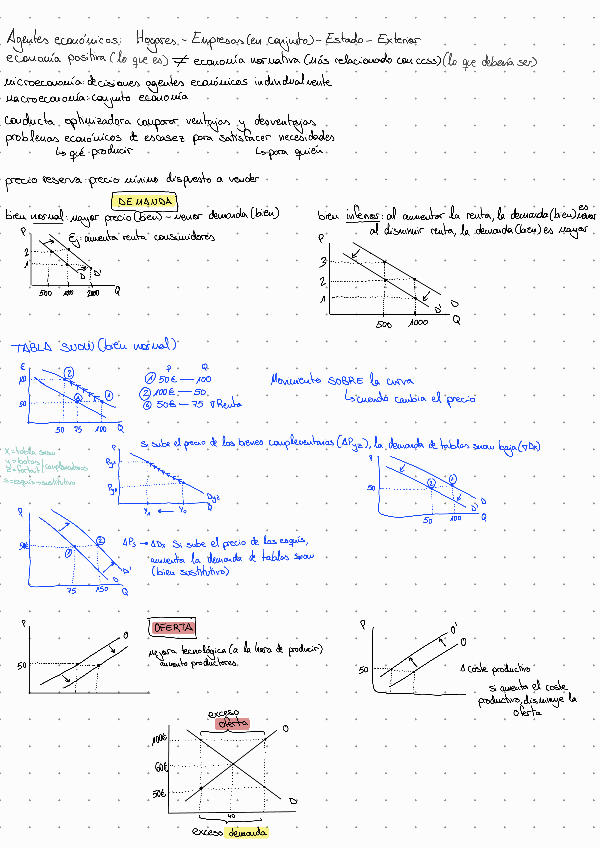 Agentes económicos: Hogares - Empresas (en conjunto) - Estado - Exterior
economía positiva (lo que es) ≠ economía normativa (más relacionado con ccss) (lo que debería ser)
microeconomía: decisiones agentes económicos individualmente
macroeconomía: conjunto economía
conducta optimizadora comparar ventajas y desventajas
problemas económicos de escasez para satisfacer necesidades
↳ qué producir ↳ para quién
precio reserva: precio mínimo dispuesto a vender
DEMANDA
bien normal: mayor precio (bien) - menor demanda (bien)
Ej: aumenta renta consumidores
P
2
1
500 1000 2000 Q
D D'
bien inferior: al aumentar la renta, la demanda (bien) es menor
al disminuir renta, la demanda (bien) es mayor
P
3
2
1
500 1000 Q
D' D
TABLA SNOW (bien normal)
€
100
50
50 75 100 Q
P Q
① 50€ — 100
② 100€ — 50
③ 50€ — 75 ∇Renta
Movimiento SOBRE la curva
↳ cuando cambia el precio
x = tabla snow
y = botas
z = forfait
complementarios
s = esquís → sustitutivo
Si sube el precio de los bienes complementarios (ΔPyz), la demanda de tablas snow baja (∇Dx)
P
Py1
Py0
Y1 ← Y0 Q
Dyz
P
50
50 100 Q
② ①
D' D
P
50€
75 150 Q
① ②
D D'
ΔPs → ΔDx Si sube el precio de los esquís,
aumenta la demanda de tablas snow
(bien sustitutivo)
OFERTA
P
50
O
mejora tecnológica (a la hora de producir)
aumento productores
P
50
O'
O
Δ coste productivo
si aumenta el coste
productivo, disminuye la
oferta
exceso
oferta
100€
60€
50€
40
O
D
exceso demanda